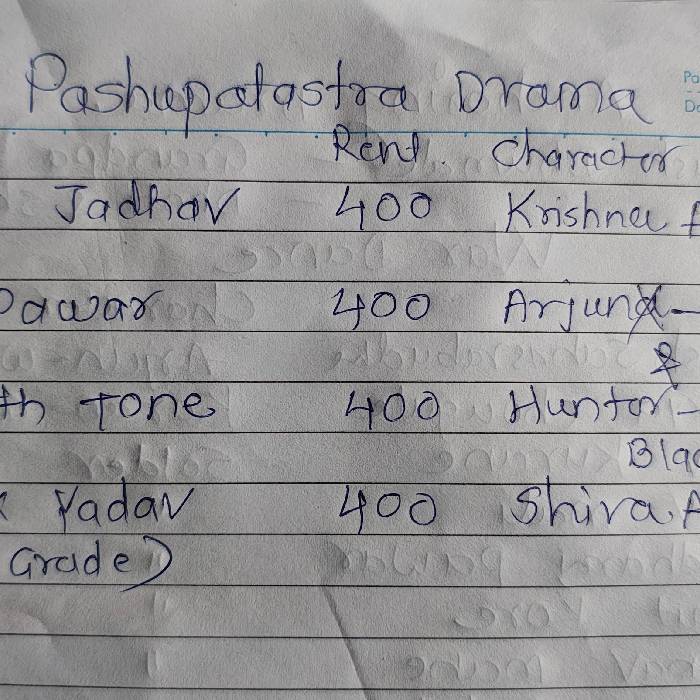 Pashupatastra Drama
Rent. Charactor
Jadhav 400 Krishna
Pawar 400 Arjuna-
&
th Tone 400 Huntor-
Blac
Yadav 400 Shiva A
Grade)